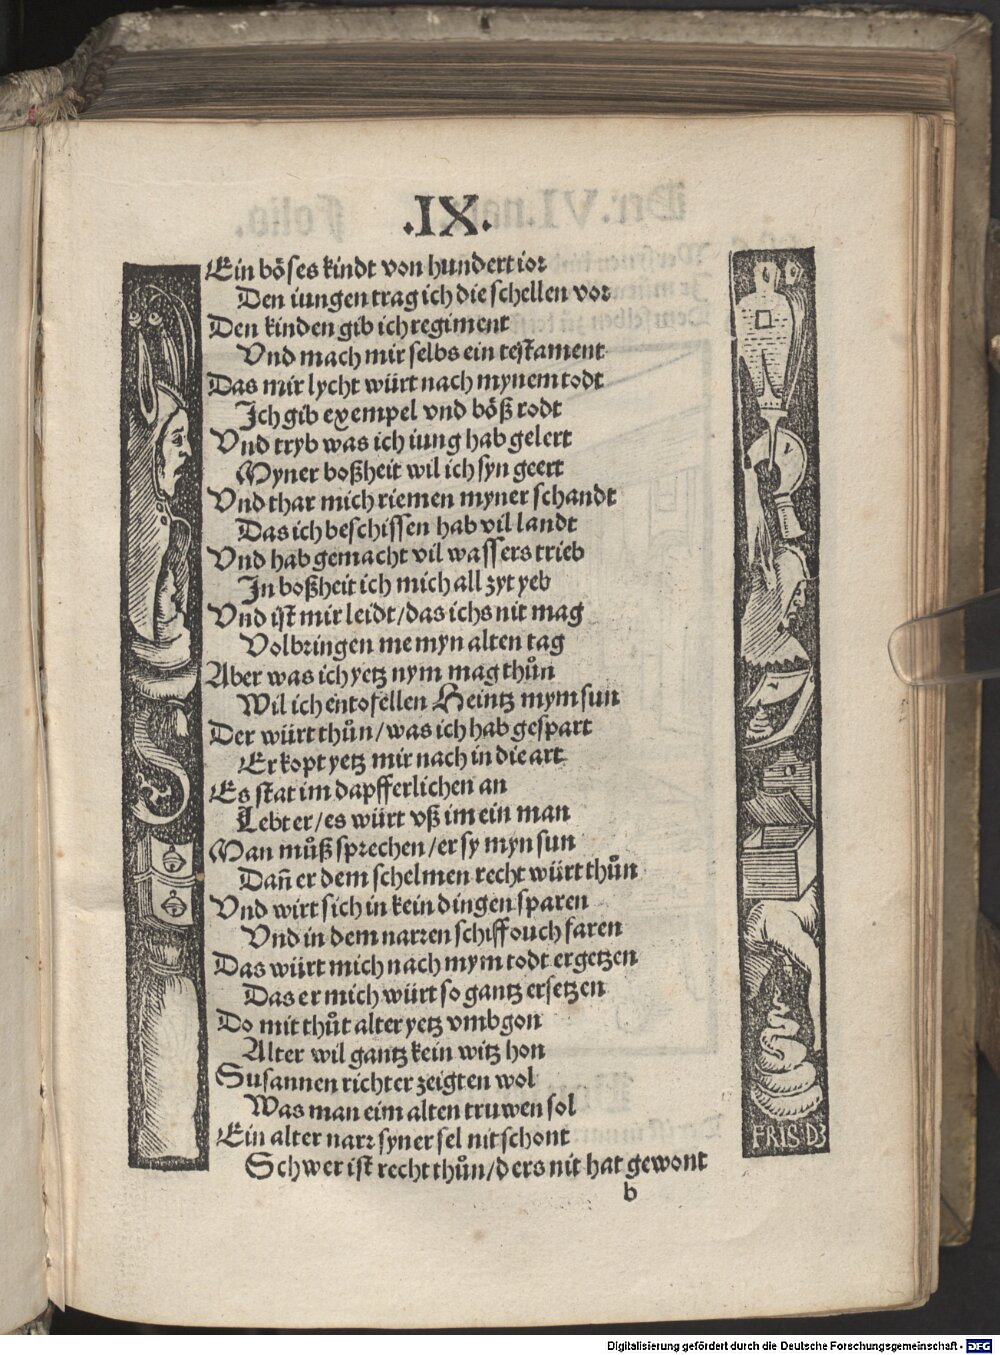 .IX.
Ein böses kindt von hundert ior
Den iungen trag ich die schellen vor
Den kinden gib ich regiment
Vnd mach mir selbs ein testament
Das mir lycht würt nach mynem todt
Ich gib exempel vnd böß rodt
Vnd tryb was ich iung hab gelert
Myner boßheit wil ich syn geert
Vnd thar mich riemen myner schandt
Das ich beschissen hab vil landt
Vnd hab gemacht vil wassers trieb
In boßheit ich mich all zyt yeb
Vnd ist mir leidt/das ichs nit mag
Volbringen me myn alten tag
Aber was ich yetz nym mag thůn
Wil ich entofellen Heintz mym sun
Der würt thůn/was ich hab gespart
Er kopt yetz mir nach in die art
Es stat im dapfferlichen an
Lebt er/es würt vß im ein man
Man můß sprechen/er sy myn sun
Dañ er dem schelmen recht würt thůn
Vnd wirt sich in kein dingen sparen
Vnd in dem narren schiff ouch faren
Das würt mich nach mym todt ergetzen
Das er mich würt so gantz ersetzen
Do mit thůt alter yetz vmbgon
Alter wil gantz kein witz hon
Susannen richter zeigten wol
Was man eim alten truwen sol
Ein alter narr syner sel nit schont
Schwer ist recht thůn/ders nit hat gewont
b
FRIS D3
Digitalisierung gefördert durch die Deutsche Forschungsgemeinschaft - DFG